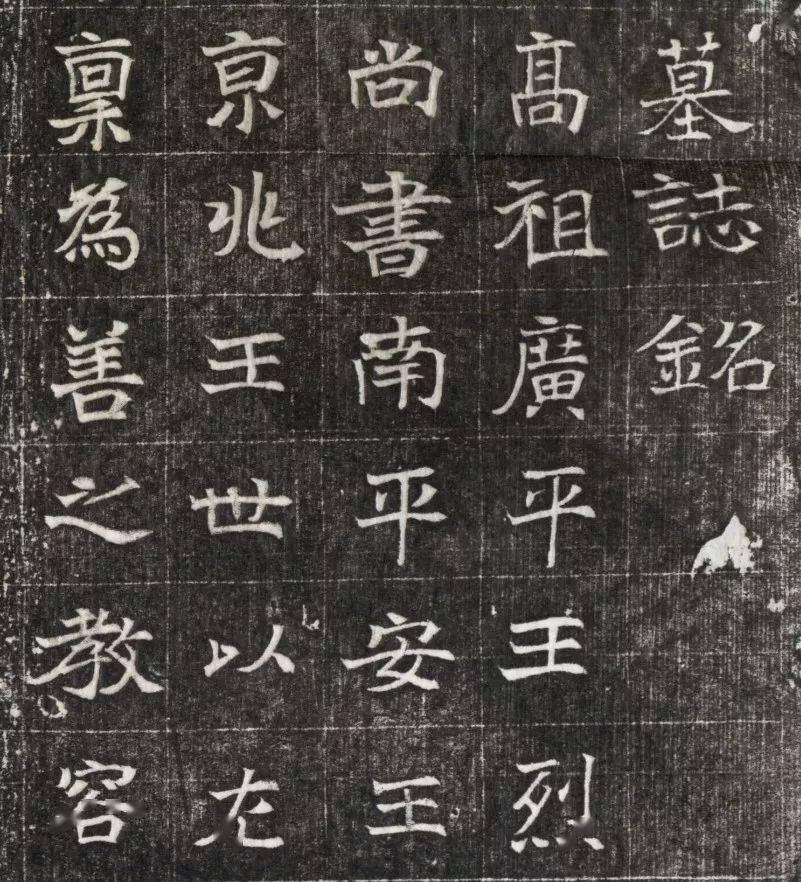 墓誌銘
髙祖廣平王烈
尚書南平安王
亰兆王世以
稟為善之教容